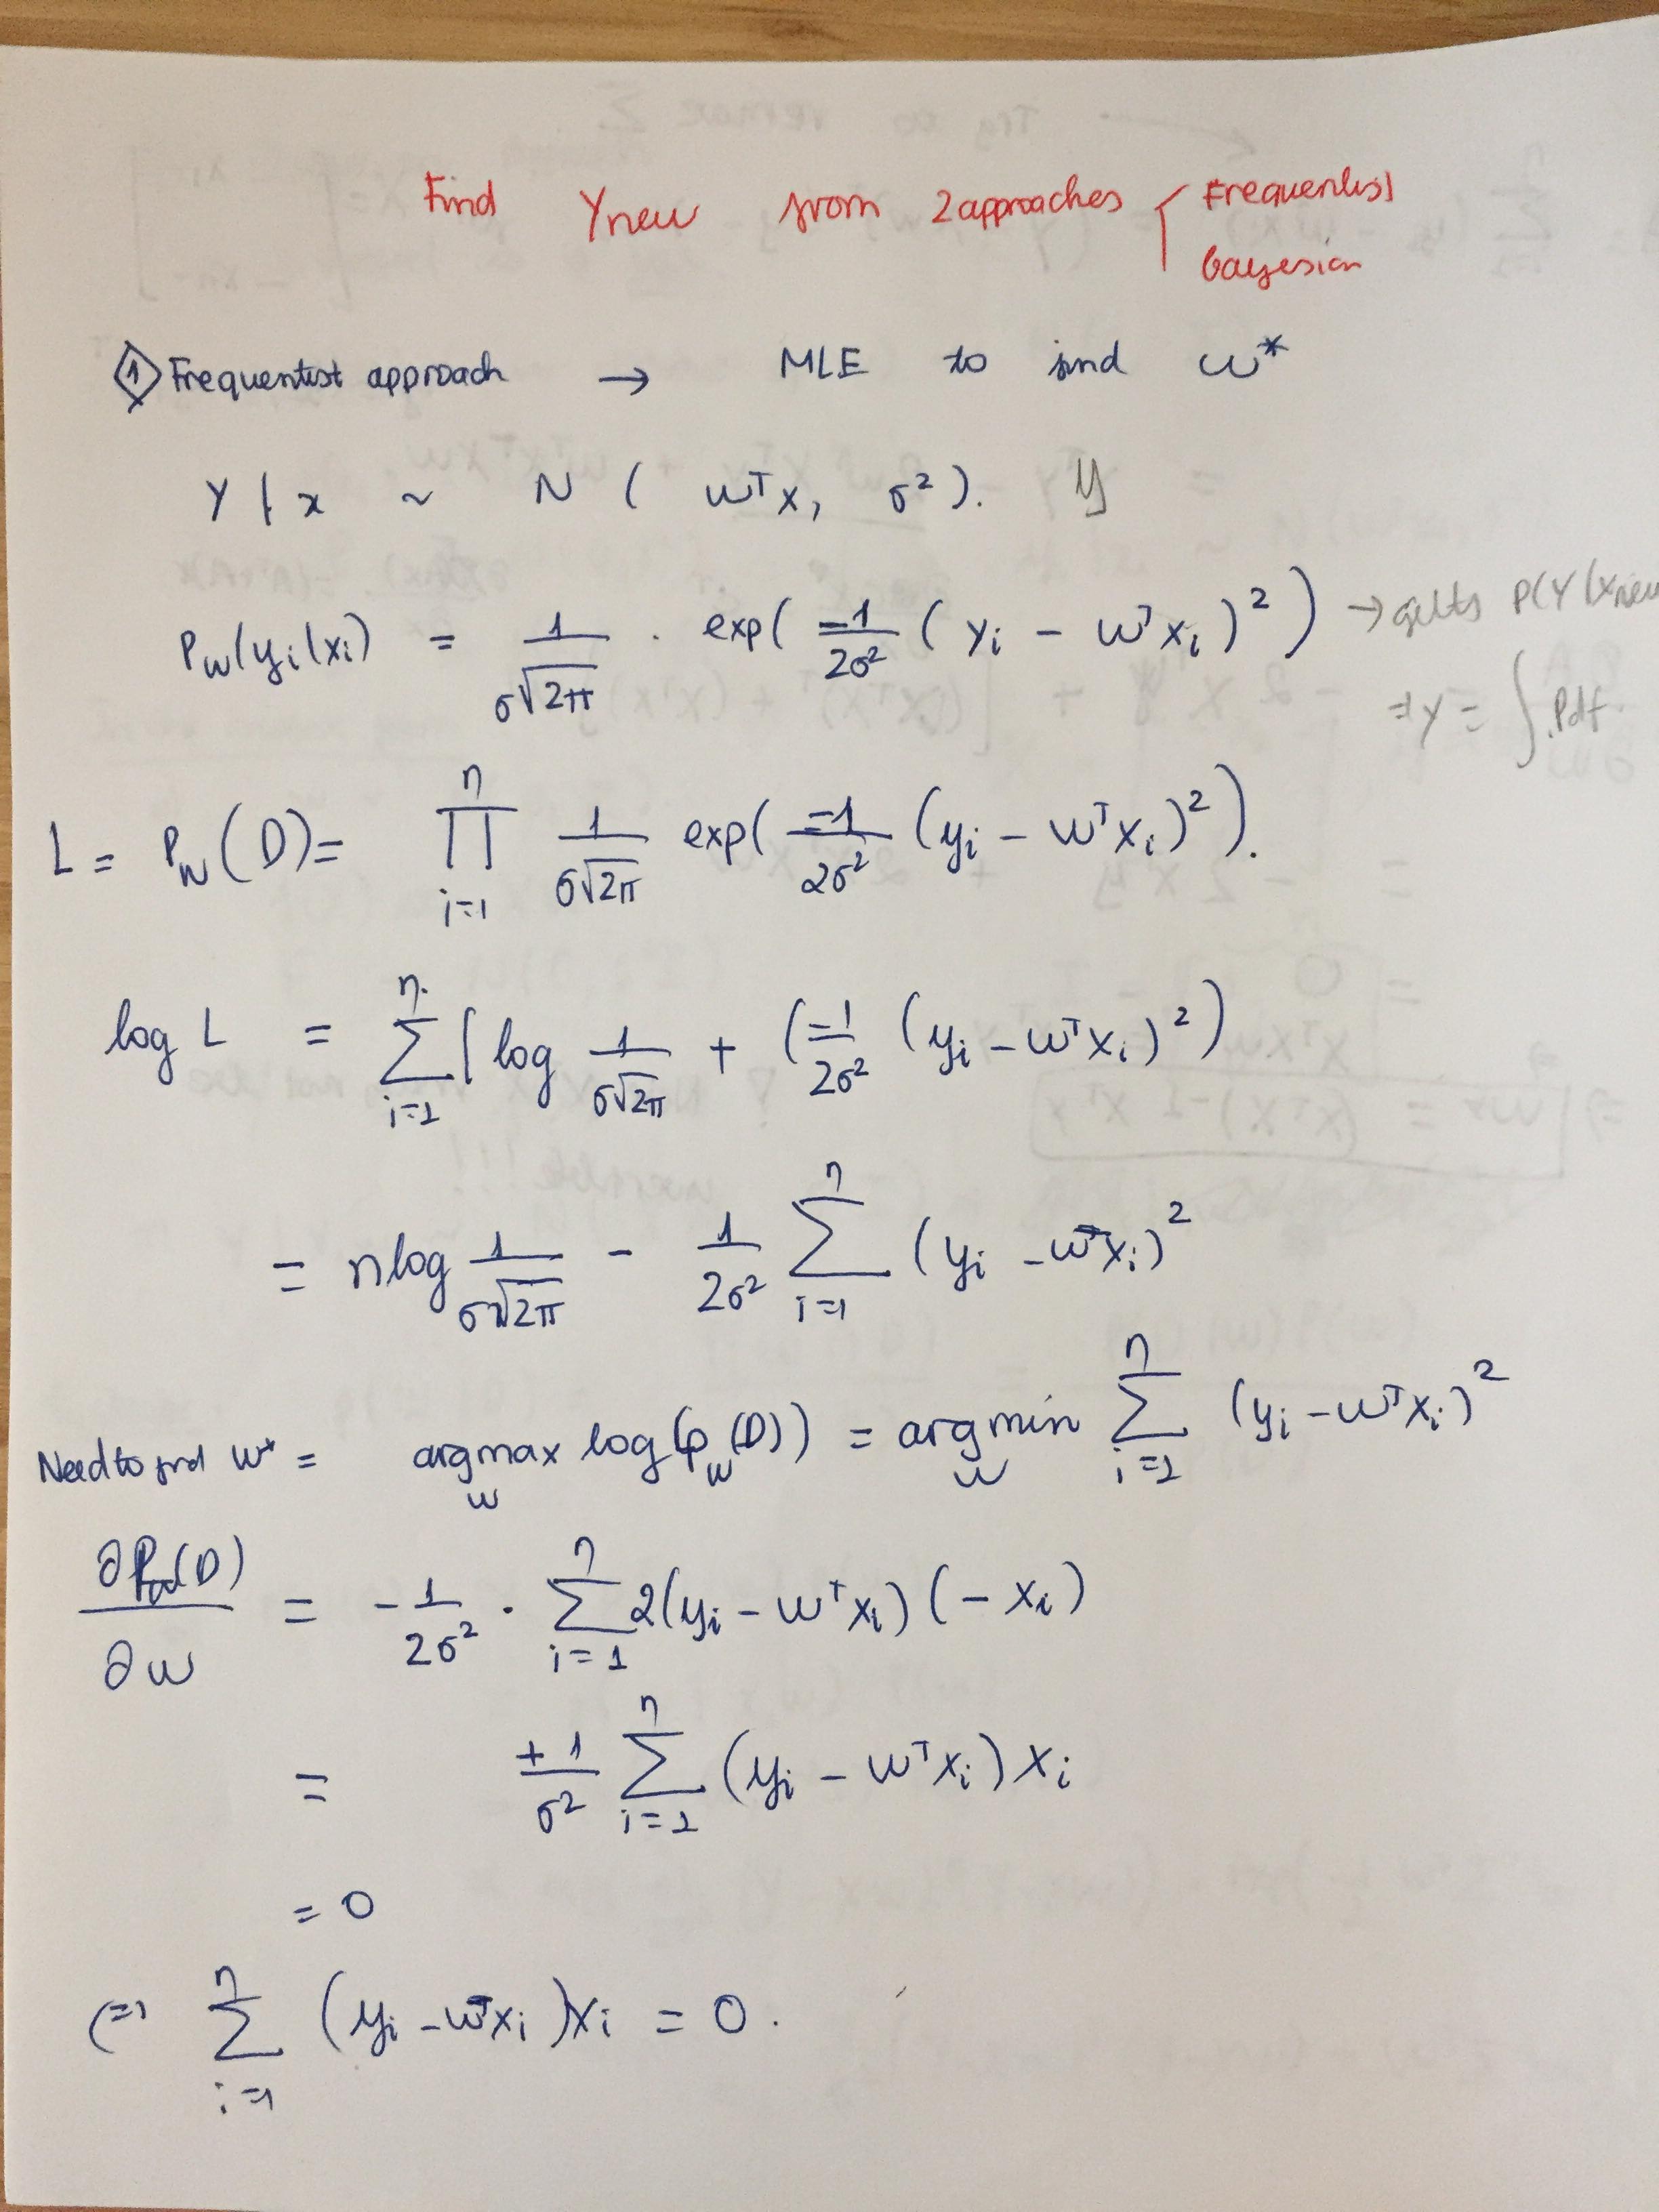 Find Ynew from 2 approaches { Frequentist
Bayesian
① Frequentist approach → MLE to find w*
Y | x ~ N ( wᵀx, σ²). y
Pw(yi|xi) = 1/(σ√2π) · exp( -1/2σ² ( yi - wᵀxi )² ) → P(Y|xnew
⇒ Y = ∫ Pdf
L = Pw(D) = ∏ᵢ₌₁ⁿ 1/(σ√2π) exp( -1/2σ² (yi - wᵀxi)² ).
log L = ∑ᵢ₌₁ⁿ [ log 1/(σ√2π) + ( -1/2σ² (yi - wᵀxi)² )
= n log 1/(σ√2π) - 1/2σ² ∑ᵢ₌₁ⁿ (yi - wᵀxi)²
Need to find w* = argmax_w log(pw(D)) = argmin_w ∑ᵢ₌₁ⁿ (yi - wᵀxi)²
∂Pw(D)/∂w = - 1/2σ² · ∑ᵢ₌₁ⁿ 2(yi - wᵀxi) (- xi)
= +1/σ² ∑ᵢ₌₁ⁿ (yi - wᵀxi) xi
= 0
(=) ∑ᵢ₌₁ⁿ (yi - wᵀxi)xi = 0.